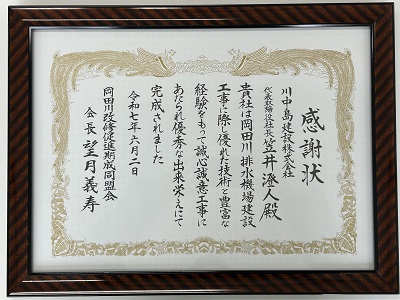 感謝状
川中島建設株式会社
代表取締役社長 笠井澄人殿
貴社は岡田川排水機場建設
工事に際し優れた技術と豊富な
経験をもって誠心誠意工事に
あたられ優秀な出来栄えにて
完成されました
令和七年六月二日
岡田川改修促進期成同盟会
会長 望月義寿